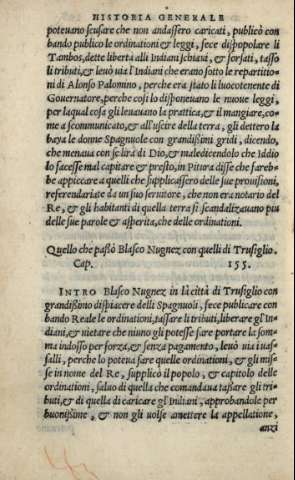 HISTORIA GENERALE
poteuano scusare che non andassero caricati, publicò con
bando publico le ordinationi & leggi, fece dispopolare li
Tambos, dette libertà alli Indiani schiaui, & sforsati, tassò
li tributi, & leuò uia l'Indiani che erano sotto le repartitio-
ni di Alonso Palomino, perche era stato li luocotenente di
Gouernatore, perche così lo disponeuano le nuoue leggi,
per laqual cosa gli leuauano la prattica, & il mangiare, co-
me a scommunicato, & all'uscire della terra, gli dettero la
baya le donne Spagnuole con grandissimi gridi, dicendo,
che menaua con se l'ira di Dio, & maledicendolo che Iddio
lo facesse mal capitare & presto, in Pitura disse che fareb-
be appiccare a quelli che supplicassero delle sue prouisioni,
referendariate da un suo seruitore, che non era notario del
Re, & gli habitanti di quella terra si scandalizauano piu
delle sue parole & asperità, che delle ordinationi.
Quello che passò Blasco Nugnez con quelli di Trusiglio.
Cap. 155.
INTRO Blasco Nugnez in la città di Trusiglio con
grandissimo dispiacere delli Spagnuoli, fece publicare con
bando Reale le ordinationi, tassare li tributi, liberare gl'In
diani, & uietare che niuno gli potesse fare portare la som-
ma indosso per forza, & senza pagamento, leuò uia i uas-
salli, perche lo poteua fare quelle ordinationi, & gli mis-
se in nome del Re, supplicò il popolo, & capitolo delle
ordinationi, saluo di quella che comandaua tassare gli tri-
buti, & di quella di caricare gl'Indiani, approbandole per
buonissime, & non gli uolse amettere la appellatione,
anzi